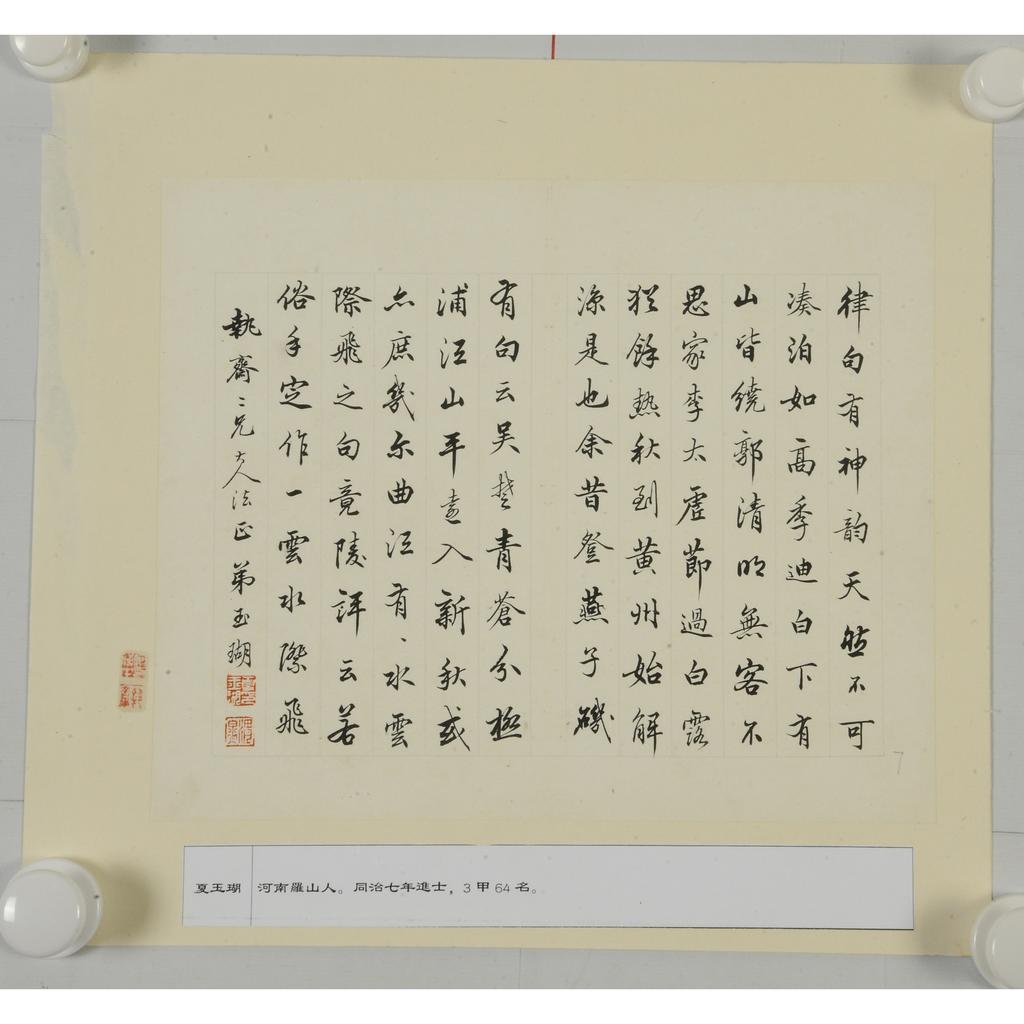 律句有神韵天然不可
凑泊如高季迪白下有
山皆繞郭清明無客不
思家李太虛節過白露
猶餘热秋到黄州始解
涼是也余昔登燕子磯
有句云吴楚青蒼分極
浦江山平遠入新秋或
亦庶幾尔曲江有〻水雲
際飛之句竟陵評云若
俗手定作一雲水際飛
執齋〻兄大人法正 弟玉瑚
7
夏玉瑚 河南羅山人。同治七年進士，3甲64名。